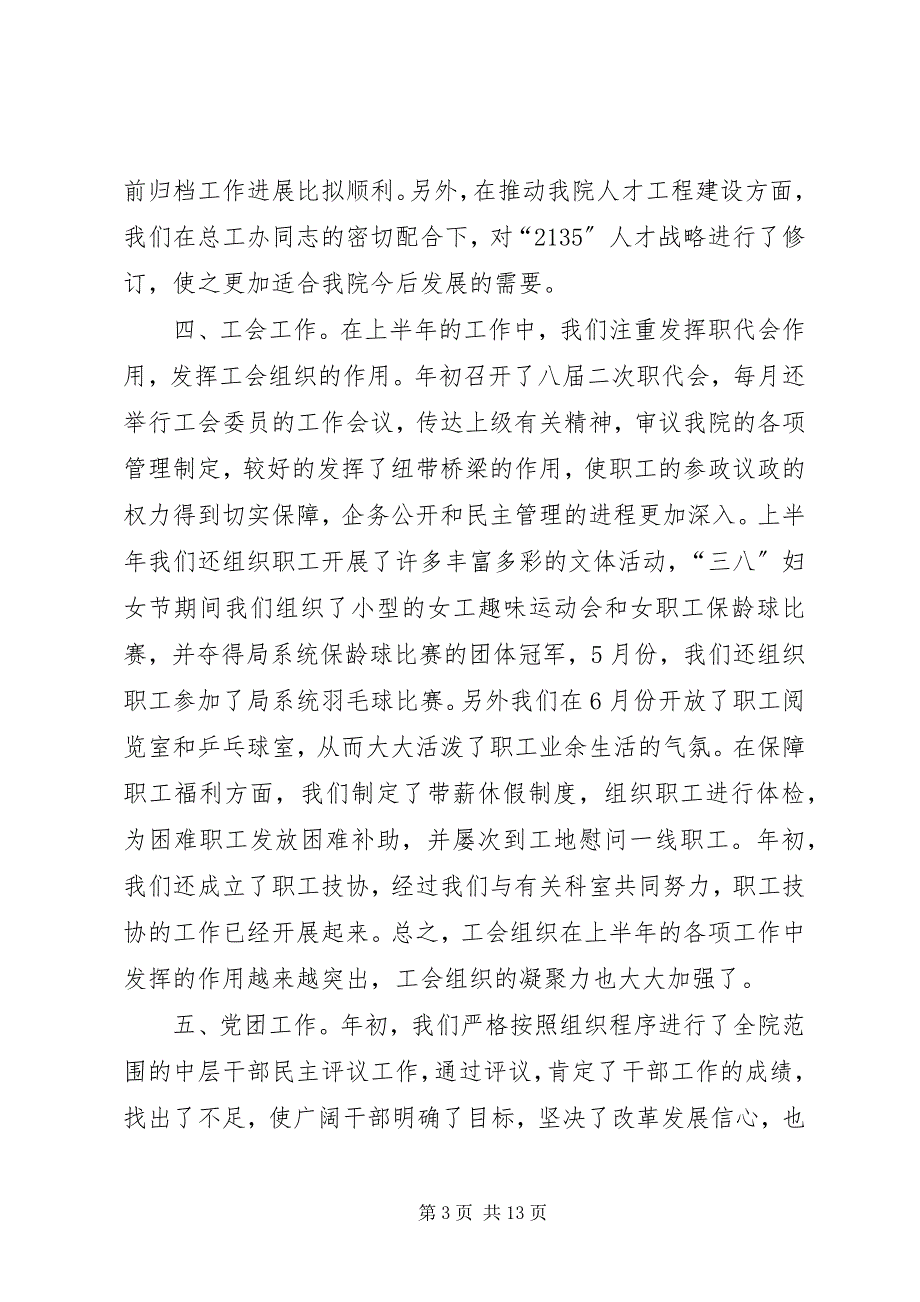 前归档工作进展比拟顺利。另外，在推动我院人才工程建设方面，
我们在总工办同志的密切配合下，对“2135〞人才战略进行了修
订，使之更加适合我院今后发展的需要。
四、工会工作。在上半年的工作中，我们注重发挥职代会作
用，发挥工会组织的作用。年初召开了八届二次职代会，每月还
举行工会委员的工作会议，传达上级有关精神，审议我院的各项
管理制定，较好的发挥了纽带桥梁的作用，使职工的参政议政的
权力得到切实保障，企务公开和民主管理的进程更加深入。上半
年我们还组织职工开展了许多丰富多彩的文体活动，“三八〞妇
女节期间我们组织了小型的女工趣味运动会和女职工保龄球比
赛，并夺得局系统保龄球比赛的团体冠军，5 月份，我们还组织
职工参加了局系统羽毛球比赛。另外我们在 6 月份开放了职工阅
览室和乒乓球室，从而大大活泼了职工业余生活的气氛。在保障
职工福利方面，我们制定了带薪休假制度，组织职工进行体检，
为困难职工发放困难补助，并屡次到工地慰问一线职工。年初，
我们还成立了职工技协，经过我们与有关科室共同努力，职工技
协的工作已经开展起来。总之，工会组织在上半年的各项工作中
发挥的作用越来越突出，工会组织的凝聚力也大大加强了。
五、党团工作。年初，我们严格按照组织程序进行了全院范
围的中层干部民主评议工作，通过评议，肯定了干部工作的成绩，
找出了不足，使广阔干部明确了目标，坚决了改革发展信心，也
第 3 页 共 13 页